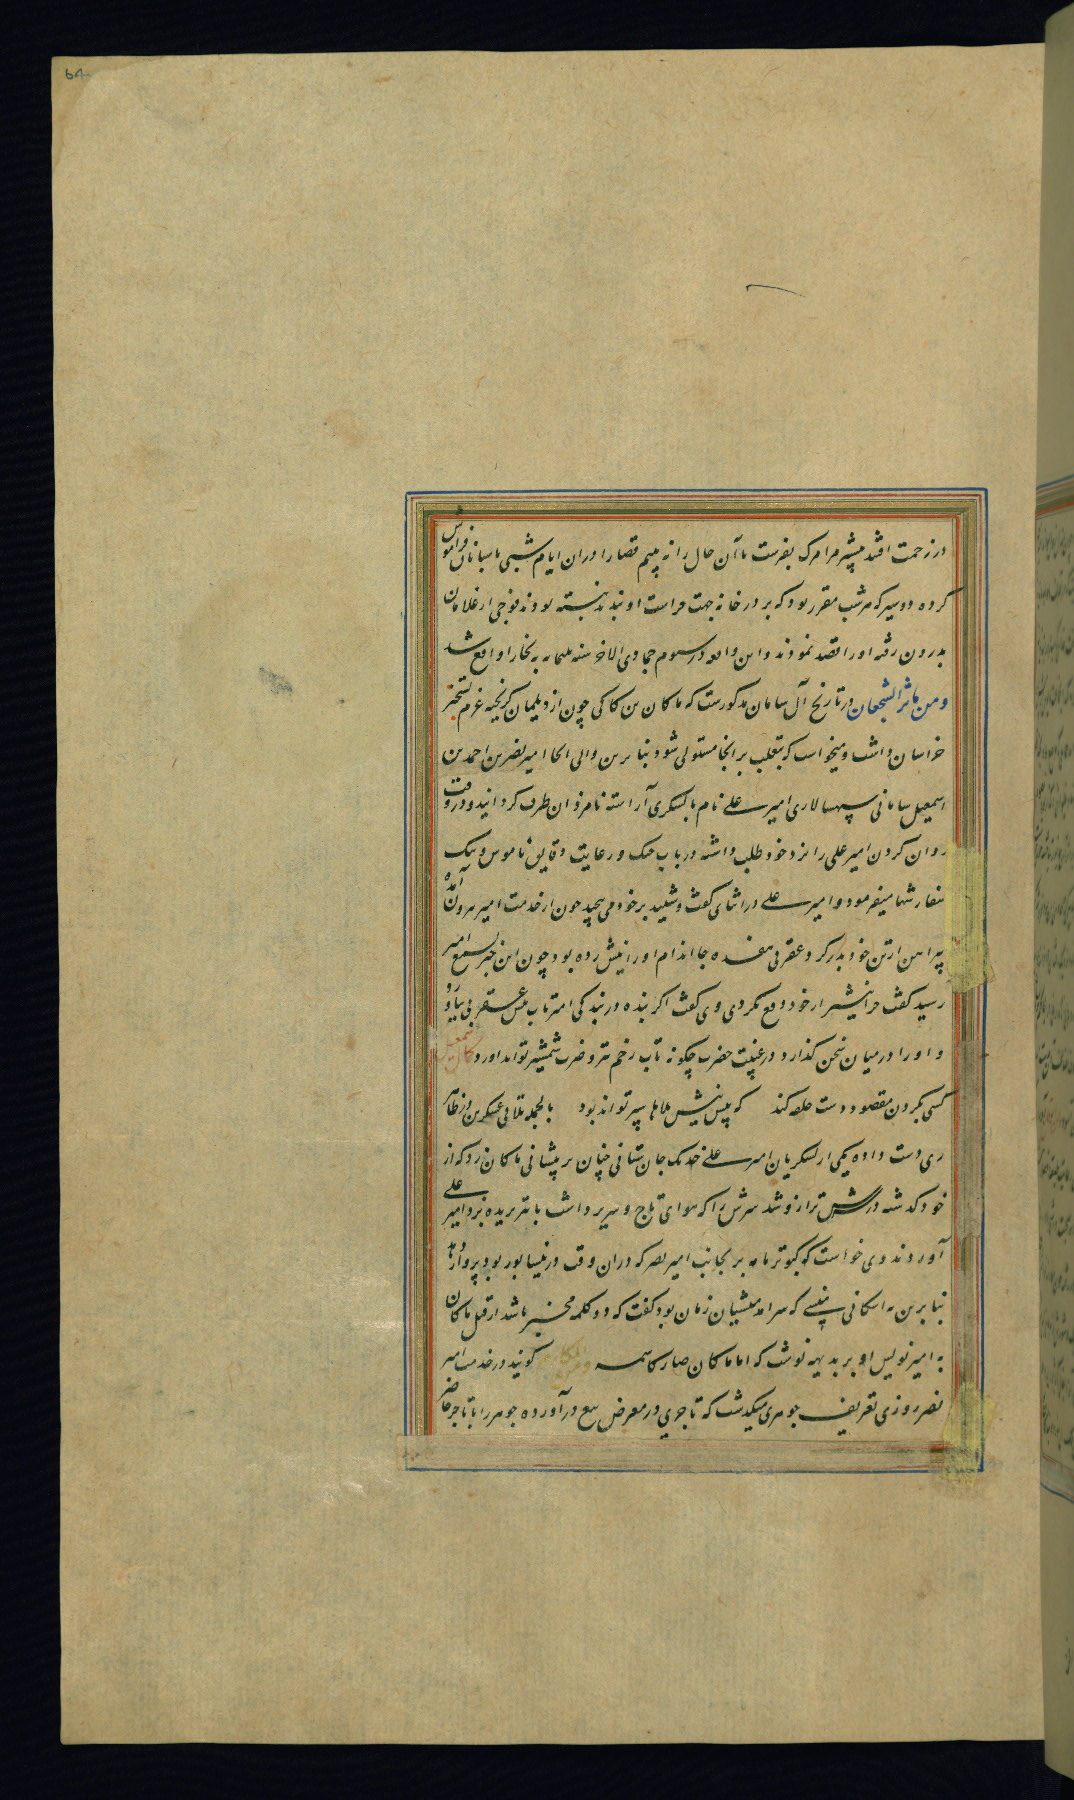 در زحمت افتد پیشتر مرا مرک بفرست تا آن حال را نه بینم قضا را در آن ایام شبی پاسبانان فراموش
کرده دو شیر که هر شب مقرر بود که بر در خانه جهت حراست او بندند نبسته بودند فوجی از غلامان
بدرون رفته او را قصد نمودند و این واقعه در سیوم جمادی الاخر سنه به بخارا واقع شد
ومن مآثر الشجعان در تاریخ آل سامان مذکورست که ماکان بن کاکی چون از دیلمیان کریخته عزم تسخیر
خراسان داشت و میخواست که بتغلب بر آنجا مستولی شود بنابرین والی آنجا امیر نصر بن احمد بن
اسمعیل سامانی سپهسالاری امیر علی نام با لشکری آراسته نامزد آن طرف کردانید و در وقت
روان کردن امیر علی را نزد خود طلب داشته در باب جنک و رعایت دقایق ناموس و ننک
سفارشها میفرمود و امیر علی در اثنای کفت و شنید بر خود می پیچید چون از خدمت امیر بیرون آمده
پیراهن از تن خود بدر کرد عقربی هفده جا اندام او را نیش زده بود چون این خبر بسمع امیر
رسید کفت چرا پیشتر از خود دفع نکردی وی کفت اکر بنده در بندکی امیر تاب نیش عقربی نیاورد
و او را در میان سخن کذارد در غیبت حضرت چکونه تاب زخم تیر و ضرب شمشیر تواند آورد
کسی بکردن مقصود دست حلقه کند که پیش نیش بلاها سپر تواند بود بالجمله تلاقی عسکرین در ظاهر
ری دست داده یکی از لشکریان امیر علی خدنک جان ستانی چنان بر پیشانی ماکان زد که از
خود کذشته در سرش ترازو شد سرش را که هوای تاج و سریر داشت با تیر بریده نزد امیر علی
آوردند وی خواست که کبوتر نامه بر بجانب امیر نصر که در آن وقت در نیسابور بود پرواز دهد
بنابرین به اسکافی که سرآمد منشیان زمان بود کفت که دو کلمه مخبر باشد از قتل ماکان
به امیر نویس او بر بدیهه نوشت که اما ماکان صار کاسمه کویند در خدمت امیر
نصر روزی تعریف جوهری میکذشت که تاجری در معرض بیع درآورده جوهر را با تاجر حاضر